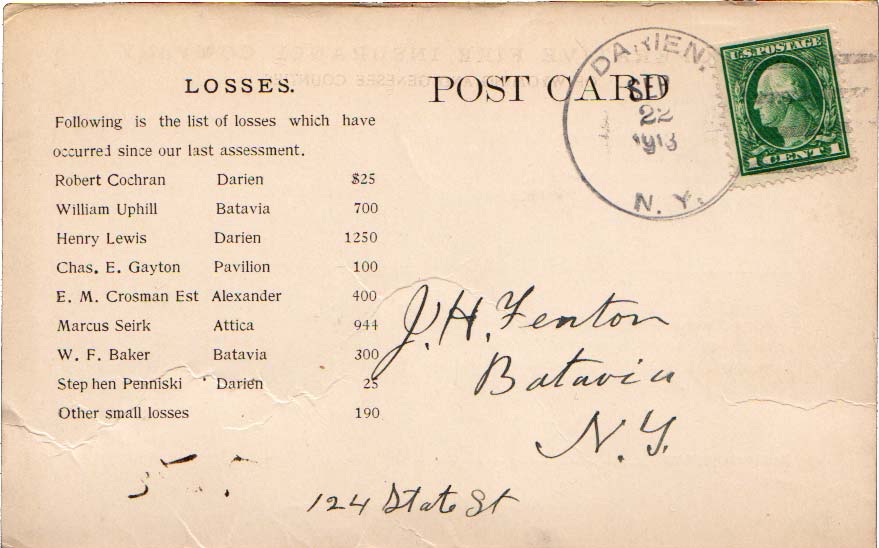 LOSSES.
Following is the list of losses which have
occurred since our last assessment.
Robert Cochran Darien $25
William Uphill Batavia 700
Henry Lewis Darien 1250
Chas. E. Gayton Pavilion 100
E. M. Crosman Est Alexander 400
Marcus Seirk Attica 944
W. F. Baker Batavia 300
Step hen Penniski Darien 25
Other small losses 190
POST CARD
DARIEN,
SEP
22
1913
N. Y.
U.S. POSTAGE
1 CENT 1
J. H. Fenton
Batavia
N.Y.
124 State St